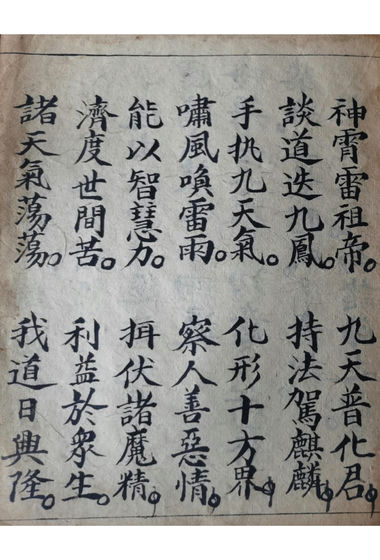 神霄雷祖帝。九天普化君。
談道迭九鳳。持法駕麒麟。
手执九天氣。化形十方界。
嘯風喚雷雨。察人善惡情。
能以智慧力。挕伏諸魔精。
濟度世間苦。利益於眾生。
諸天氣蕩蕩。我道日興隆。